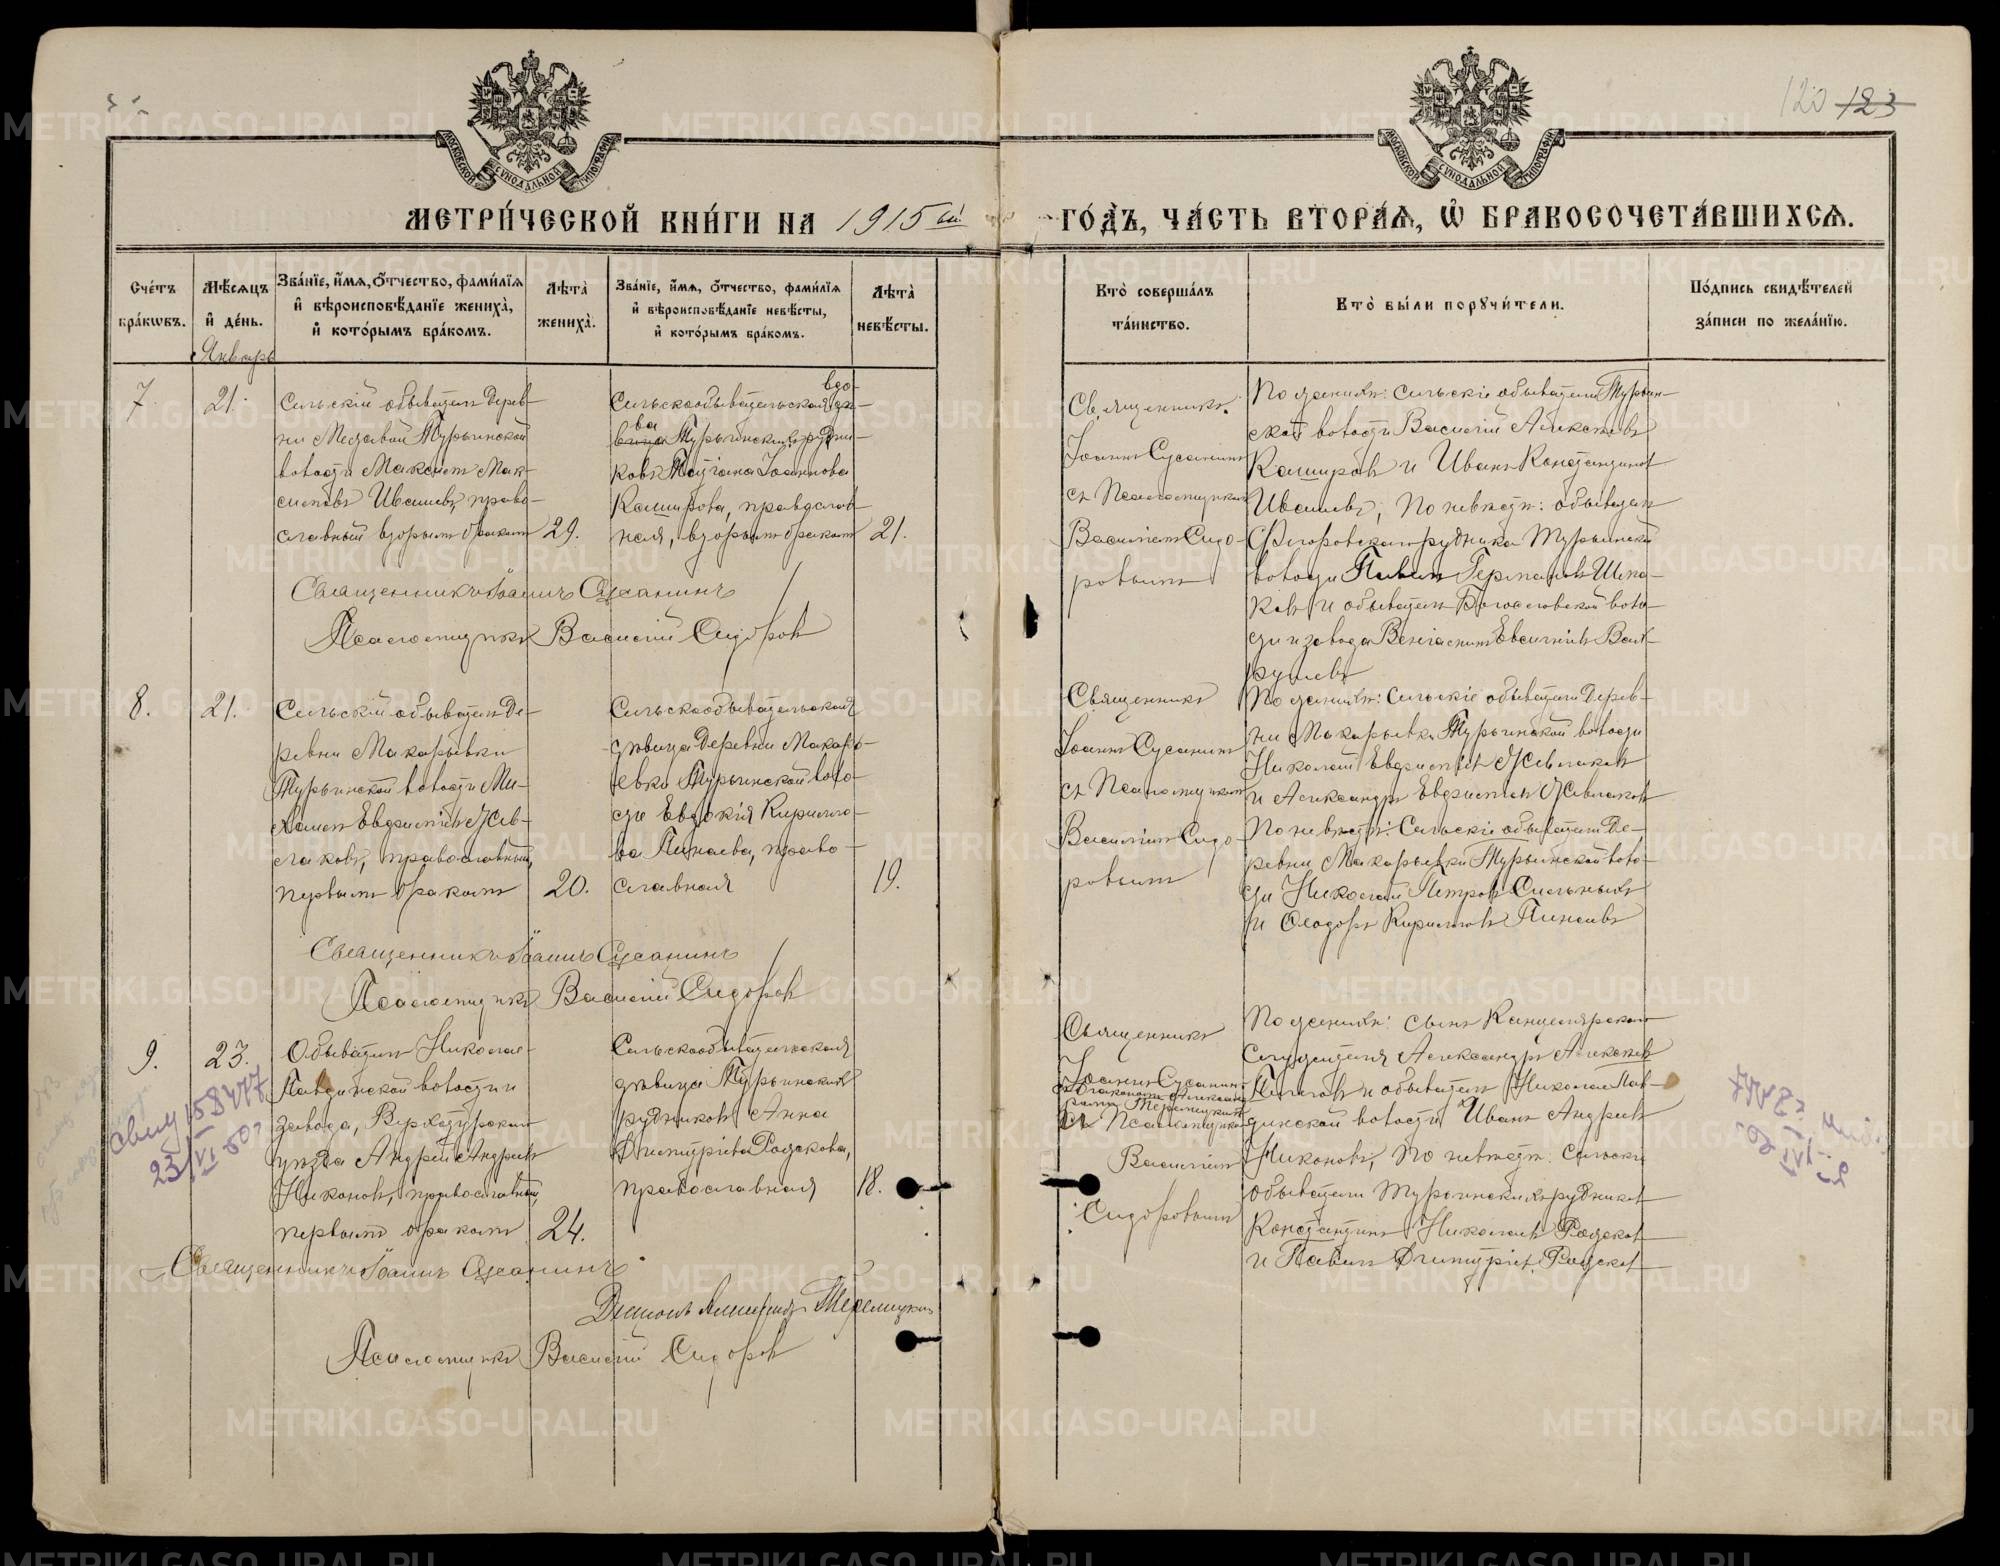 120 123
МЕТРИ́ЧЕСКОЙ КНИ́ГИ НА 1915 ый
ГО́ДЪ, ЧА́СТЬ ВТОРА́Я, Ѡ БРАКОСОЧЕТА́ВШИХСЯ.
МОСКОВСКОЙ СѴНОДАЛЬНОЙ ТИПОГРАФІИ
МОСКОВСКОЙ СѴНОДАЛЬНОЙ ТИПОГРАФІИ
Сче́тъ
бра́кѡвъ.
Мѣ́сяцъ
и҆ де́нь.
Январь
Зва́нїе, и҆́мя, ѻ҆́тчество, фами́лїя
и҆ вѣроисповѣ́данїе жениха̀,
и҆ кото́рымъ бра́комъ.
Лѣта̀
жениха̀.
Зва́нїе, и҆́мя, ѻ҆́тчество, фами́лїя
и҆ вѣроисповѣ́данїе невѣ́сты,
и҆ кото́рымъ бра́комъ.
Лѣта̀
невѣ́сты.
Кто̀ соверша́лъ
та́инство.
Кто̀ бы́ли порꙋчи́тели.
По́дпись свидѣ́телей
за́писи по жела́нїю.
7.
21.
Сельскій обыватель Дерев-
ни Турьинской
волости Максимъ Мак-
симовъ Ивашевъ, право-
славный вторымъ бракомъ
29.
Сельскообывательская вдо-
ва Турьинскихъ рудни-
ковъ Татіана Іоаннова
Каширова, православ-
ная, вторымъ бракомъ
21.
Священникъ
Іоаннъ Сусанинъ
съ Псаломщикомъ
Василіемъ Сидо-
ровымъ
По женихѣ: сельскіе обыватели Турьин-
ской волости Василій Алексѣевъ
Кашировъ и Иванъ Константиновъ
Ивашевъ; По невѣстѣ: обыватель
Фроловскаго рудника Турьинской
волости Павелъ Германовъ
и обыватель Богословской воло-
сти и завода Веніаминъ Евсигніевъ Вах-
рушевъ
Священникъ Іоаннъ Сусанинъ
Псаломщикъ Василій Сидоровъ
8.
21.
Сельскій обыватель Де-
ревни Макарьевки
Турьинской волости Ми-
хаилъ Евфиміевъ
первымъ бракомъ
20.
Сельскообывательская
дѣвица Деревни Макарь-
евки Турьинской воло-
сти Евдокія Кирилло-
ва Пинаева, право-
славная
19.
Священникъ
Іоаннъ Сусанинъ
съ Псаломщикомъ
Василіемъ Сидо-
ровымъ
По женихѣ: Сельскіе обыватели Дерев-
ни Макарьевки Турьинской волости
Николай Евфиміевъ
и Александръ Евфиміевъ
По невѣстѣ: Сельскіе обыватели Де-
ревни Макарьевки Турьинской воло-
сти Николай Петровъ Сильныхъ
и Ѳеодоръ Кирилловъ Пинаевъ
Священникъ Іоаннъ Сусанинъ
Псаломщикъ Василій Сидоровъ
9.
23.
Обыватель Николае-
Павдинской волости и
завода, Верхотурскаго
уѣзда Андрей Андреевъ
Никоновъ, православный,
первымъ бракомъ
24.
Сельскообывательская
дѣвица Турьинскихъ
рудниковъ Анна
Димитріева Радкова,
православная
18.
Священникъ
Іоаннъ Сусанинъ
съ Діакономъ Александ-
ромъ Теремецкимъ
съ Псаломщикомъ
Василіемъ
Сидоровымъ
По женихѣ: сынъ Канцелярскаго
служителя Александръ Алексѣевъ
и обыватель Николае-Пав-
динской волости Иванъ Андреевъ
Никоновъ, По невѣстѣ: Сельскіе
обыватели Турьинскихъ рудниковъ
Константинъ Николаевъ
и Павелъ Димитріевъ
Священникъ Іоаннъ Сусанинъ
Діаконъ Александръ Теремецкій
Псаломщикъ Василій Сидоровъ
23/VI